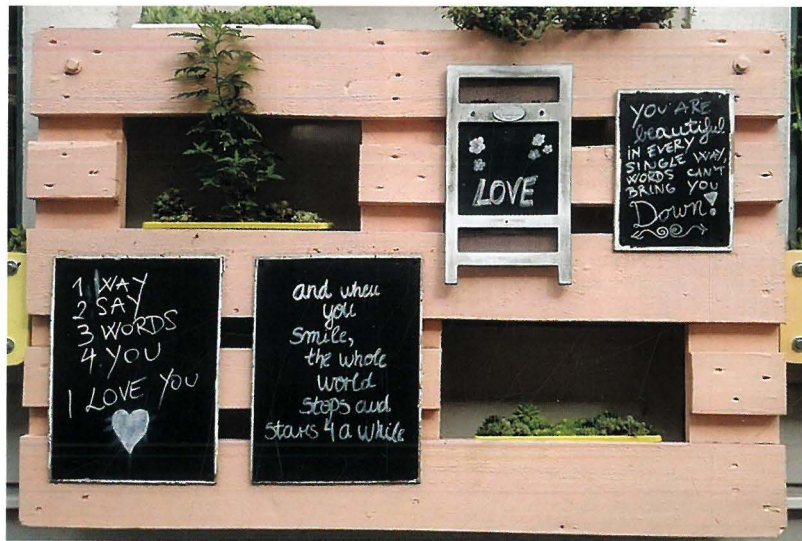 LOVE
YOU ARE
beautiful
IN EVERY
SINGLE WAY,
WORDS CAN'T
BRING YOU
Down!
1 WAY
2 SAY
3 WORDS
4 YOU
I LOVE YOU
and when
you
smile,
the whole
world
stops and
stars 4 a while